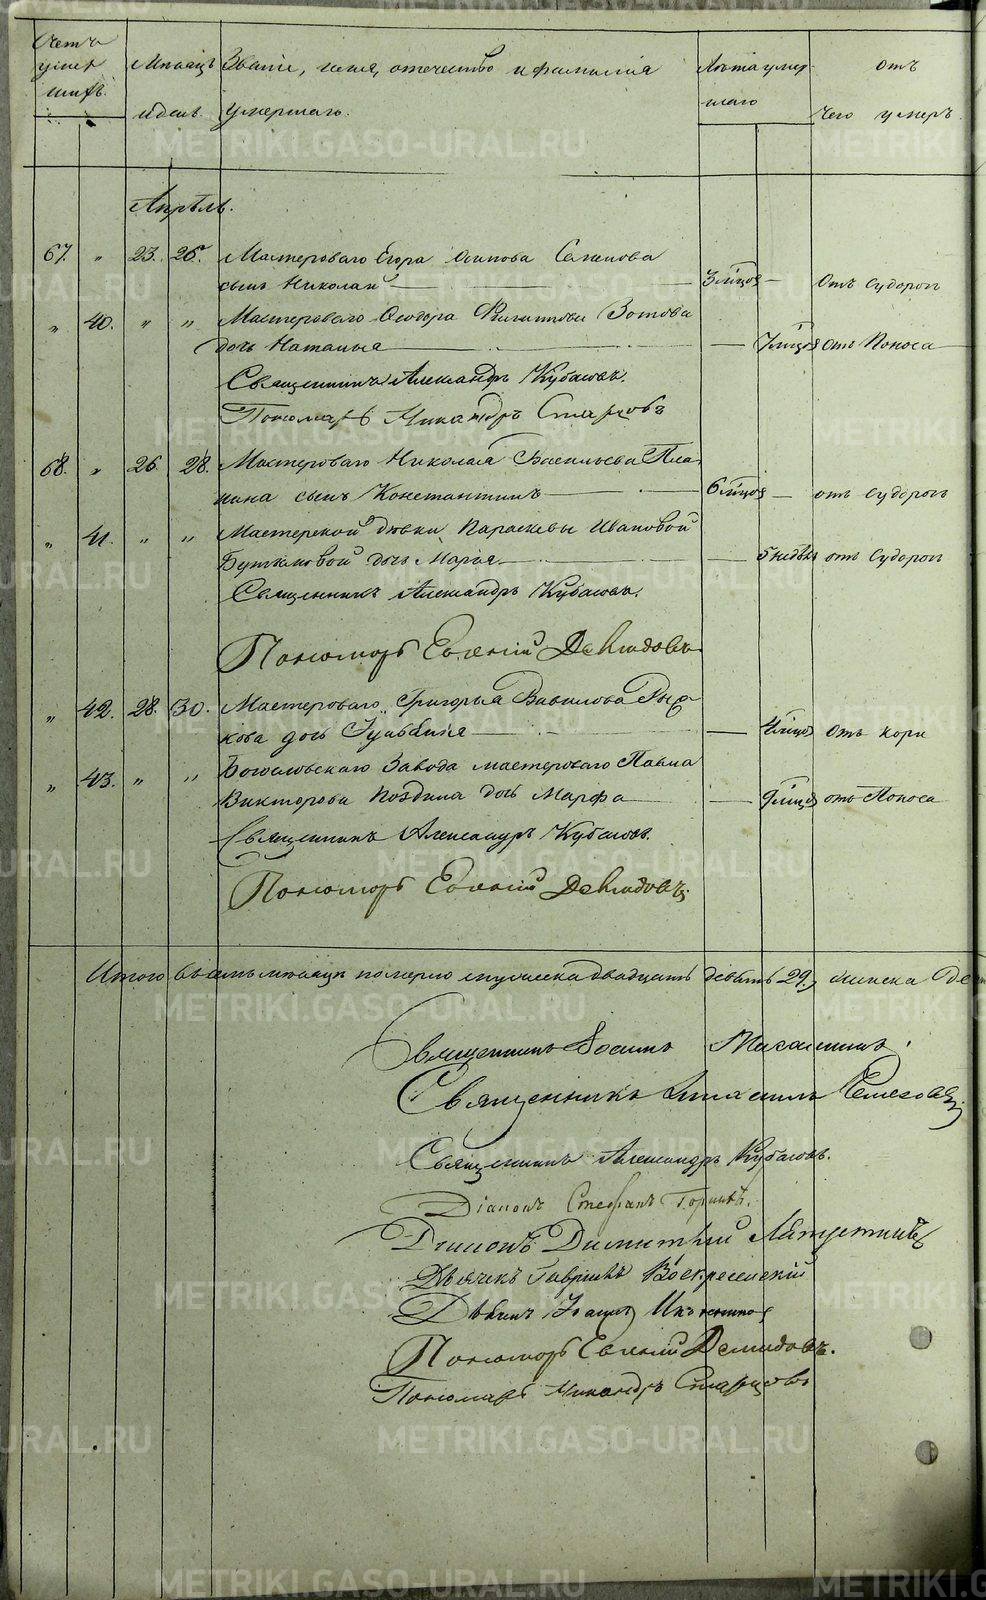 Счетъ умер шихъ.
Мѣсяцъ и день.
Званіе, имя, отечество и фамилія умершаго.
Лѣта умер шаго
отъ чего умеръ
Апрѣль.
67. " 23. 25. Мастероваго Егора Осипова Семенова
сынъ Николай — 3 мѣцов — Отъ судорогъ
" 40. " " Мастероваго Ѳеодора Зотова
дочь Наталья — 7 мѣцов отъ Поноса
Священникъ Александръ Кубасовъ.
Пономарь Никандръ Старцовъ
68. " 26. 28. Мастероваго Николая Васильева Пла
хина сынъ Константинъ — 6 мѣцов — отъ судорогъ
" 41. " " Мастерской дѣвки Параскевы Ивановой
дочь Марія — 5 недѣль отъ Судорогъ
Священникъ Александръ Кубасовъ.
Пономарь Евгеній Демидовъ
" 42. 28. 30. Мастероваго Григорья Вавилова Рыч
кова дочь — мѣцов отъ кори
" 43. " " Богословскаго Завода мастероваго Павла
Викторова дочь Марфа — 9 мѣцов отъ Поноса
Священникъ Александръ Кубасовъ.
Пономарь Евгеній Демидовъ
Итого въ семъ мѣсяцѣ померло мужеска двадцать девять 29, женска
Священникъ
Священникъ
Священникъ Александръ Кубасовъ.
Діаконъ Стефанъ
Діаконъ Димитрій
Дьячекъ Гавріилъ Воскресенскій
Дьячекъ
Пономарь Евгеній Демидовъ.
Пономарь Никандръ Старцовъ
METRIKI.GASO-URAL.RU